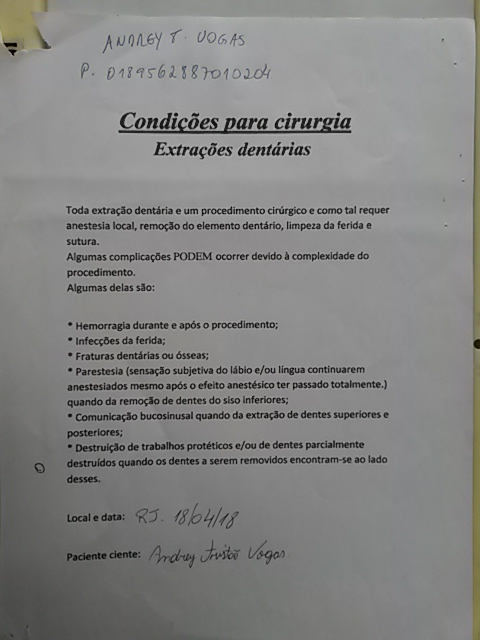 ANDREY T. VOGAS
P. 0189562887010204
Condições para cirurgia
Extrações dentárias
Toda extração dentária e um procedimento cirúrgico e como tal requer
anestesia local, remoção do elemento dentário, limpeza da ferida e
sutura.
Algumas complicações PODEM ocorrer devido à complexidade do
procedimento.
Algumas delas são:
* Hemorragia durante e após o procedimento;
* Infecções da ferida;
* Fraturas dentárias ou ósseas;
* Parestesia (sensação subjetiva do lábio e/ou língua continuarem
anestesiados mesmo após o efeito anestésico ter passado totalmente.)
quando da remoção de dentes do siso inferiores;
* Comunicação bucosinusal quando da extração de dentes superiores e
posteriores;
* Destruição de trabalhos protéticos e/ou de dentes parcialmente
destruídos quando os dentes a serem removidos encontram-se ao lado
desses.
Local e data: RJ. 18/04/18
Paciente ciente: Andrey Tristão Vogas